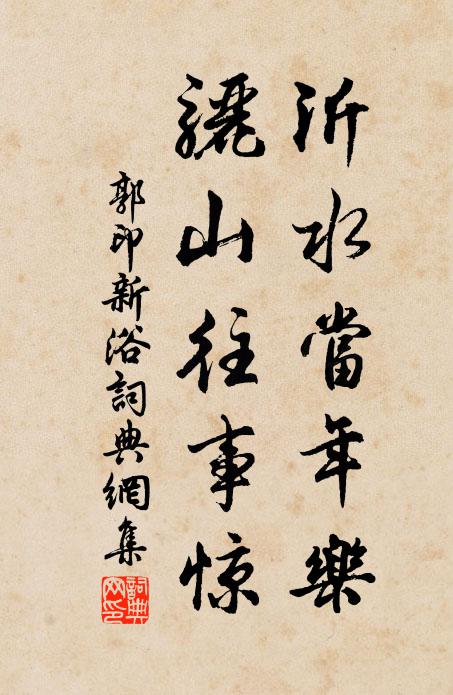 沂水當年樂
驪山往事惊
郭印新浴詞典網集
詞典网印